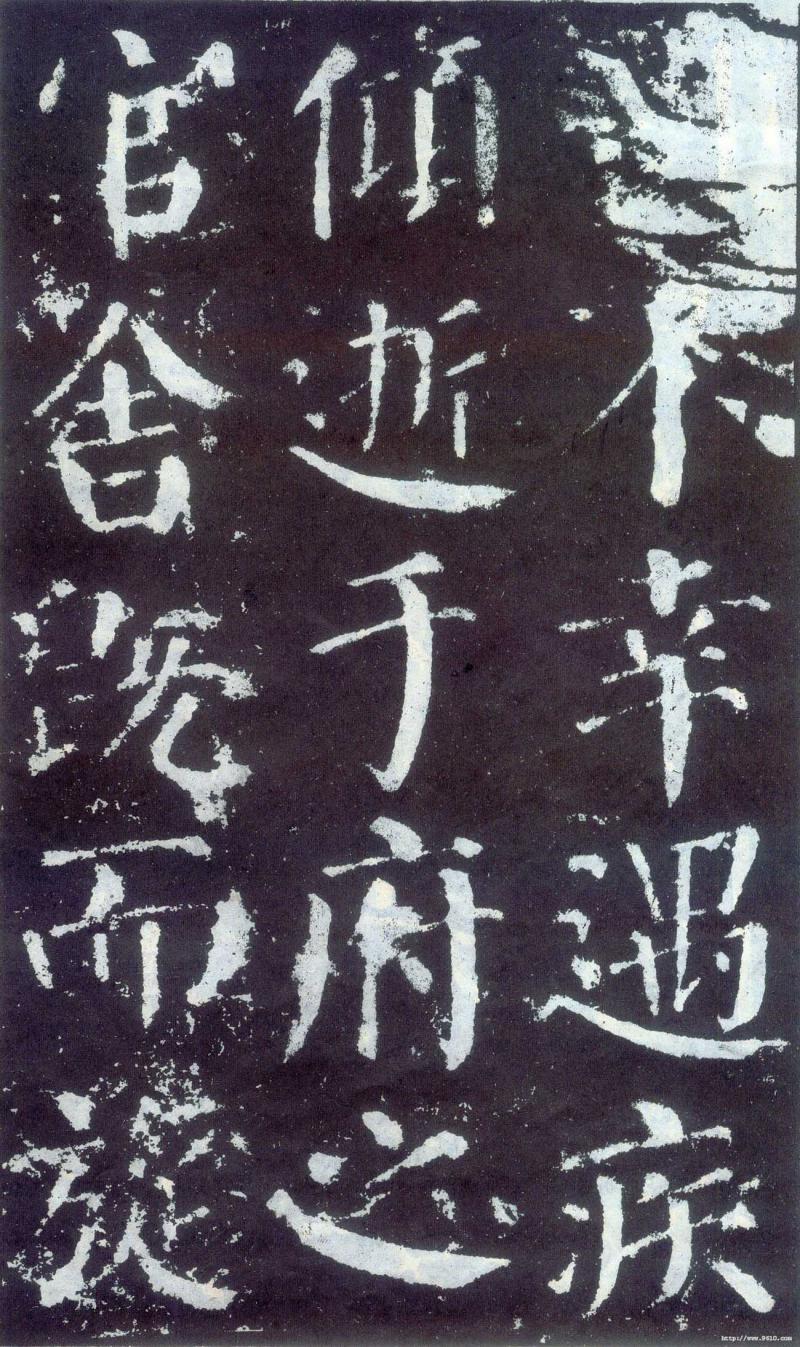 不幸遇疾
傾逝于府之
官舍既而旋
http://www.9610.com